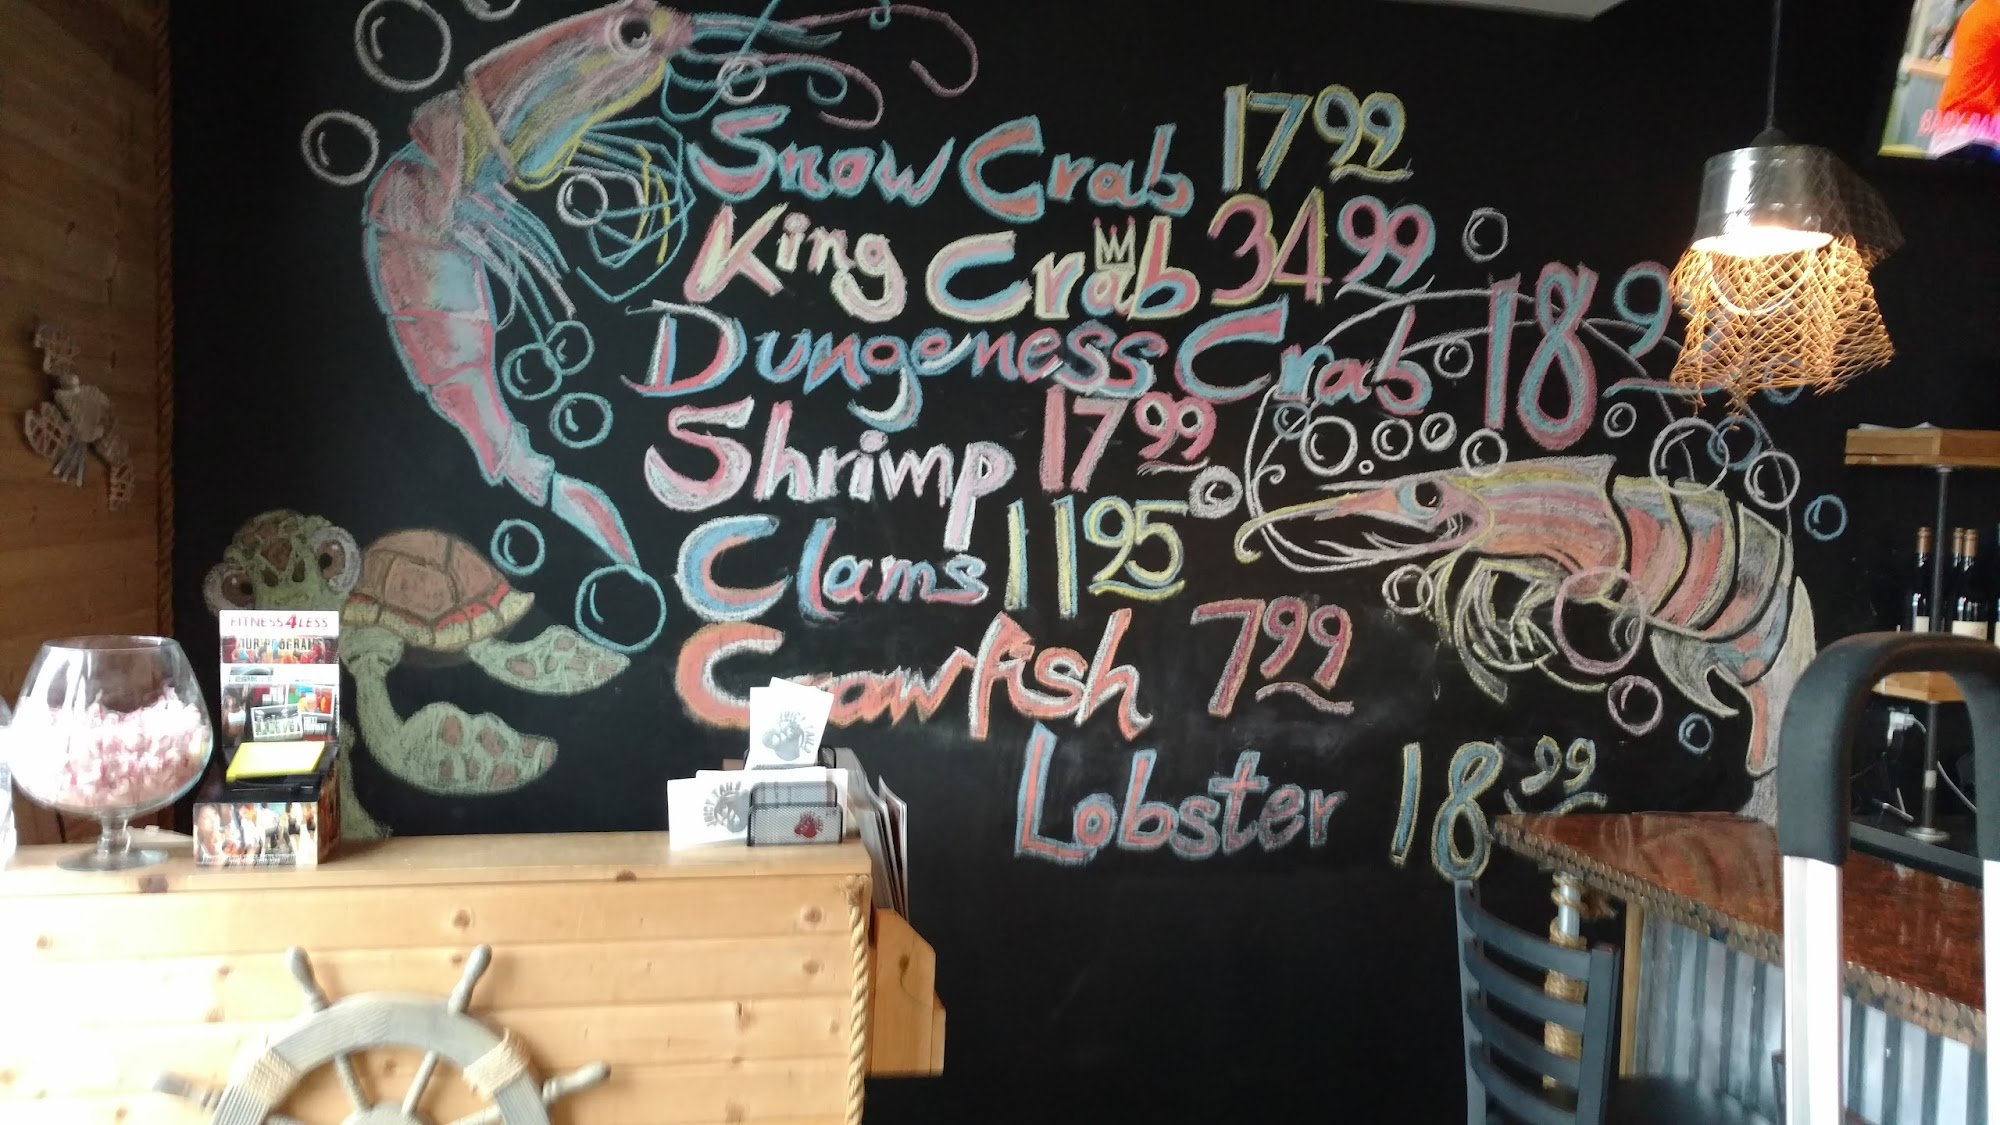 Snow Crab 17 99
King Crab 34 99
Dungeness Crab 18 9
Shrimp 17 99
Clams 11 95
Crawfish 7 99
Lobster 18 99
FITNESS4LESS
OUR PROGRAMS
JUICY TAILS